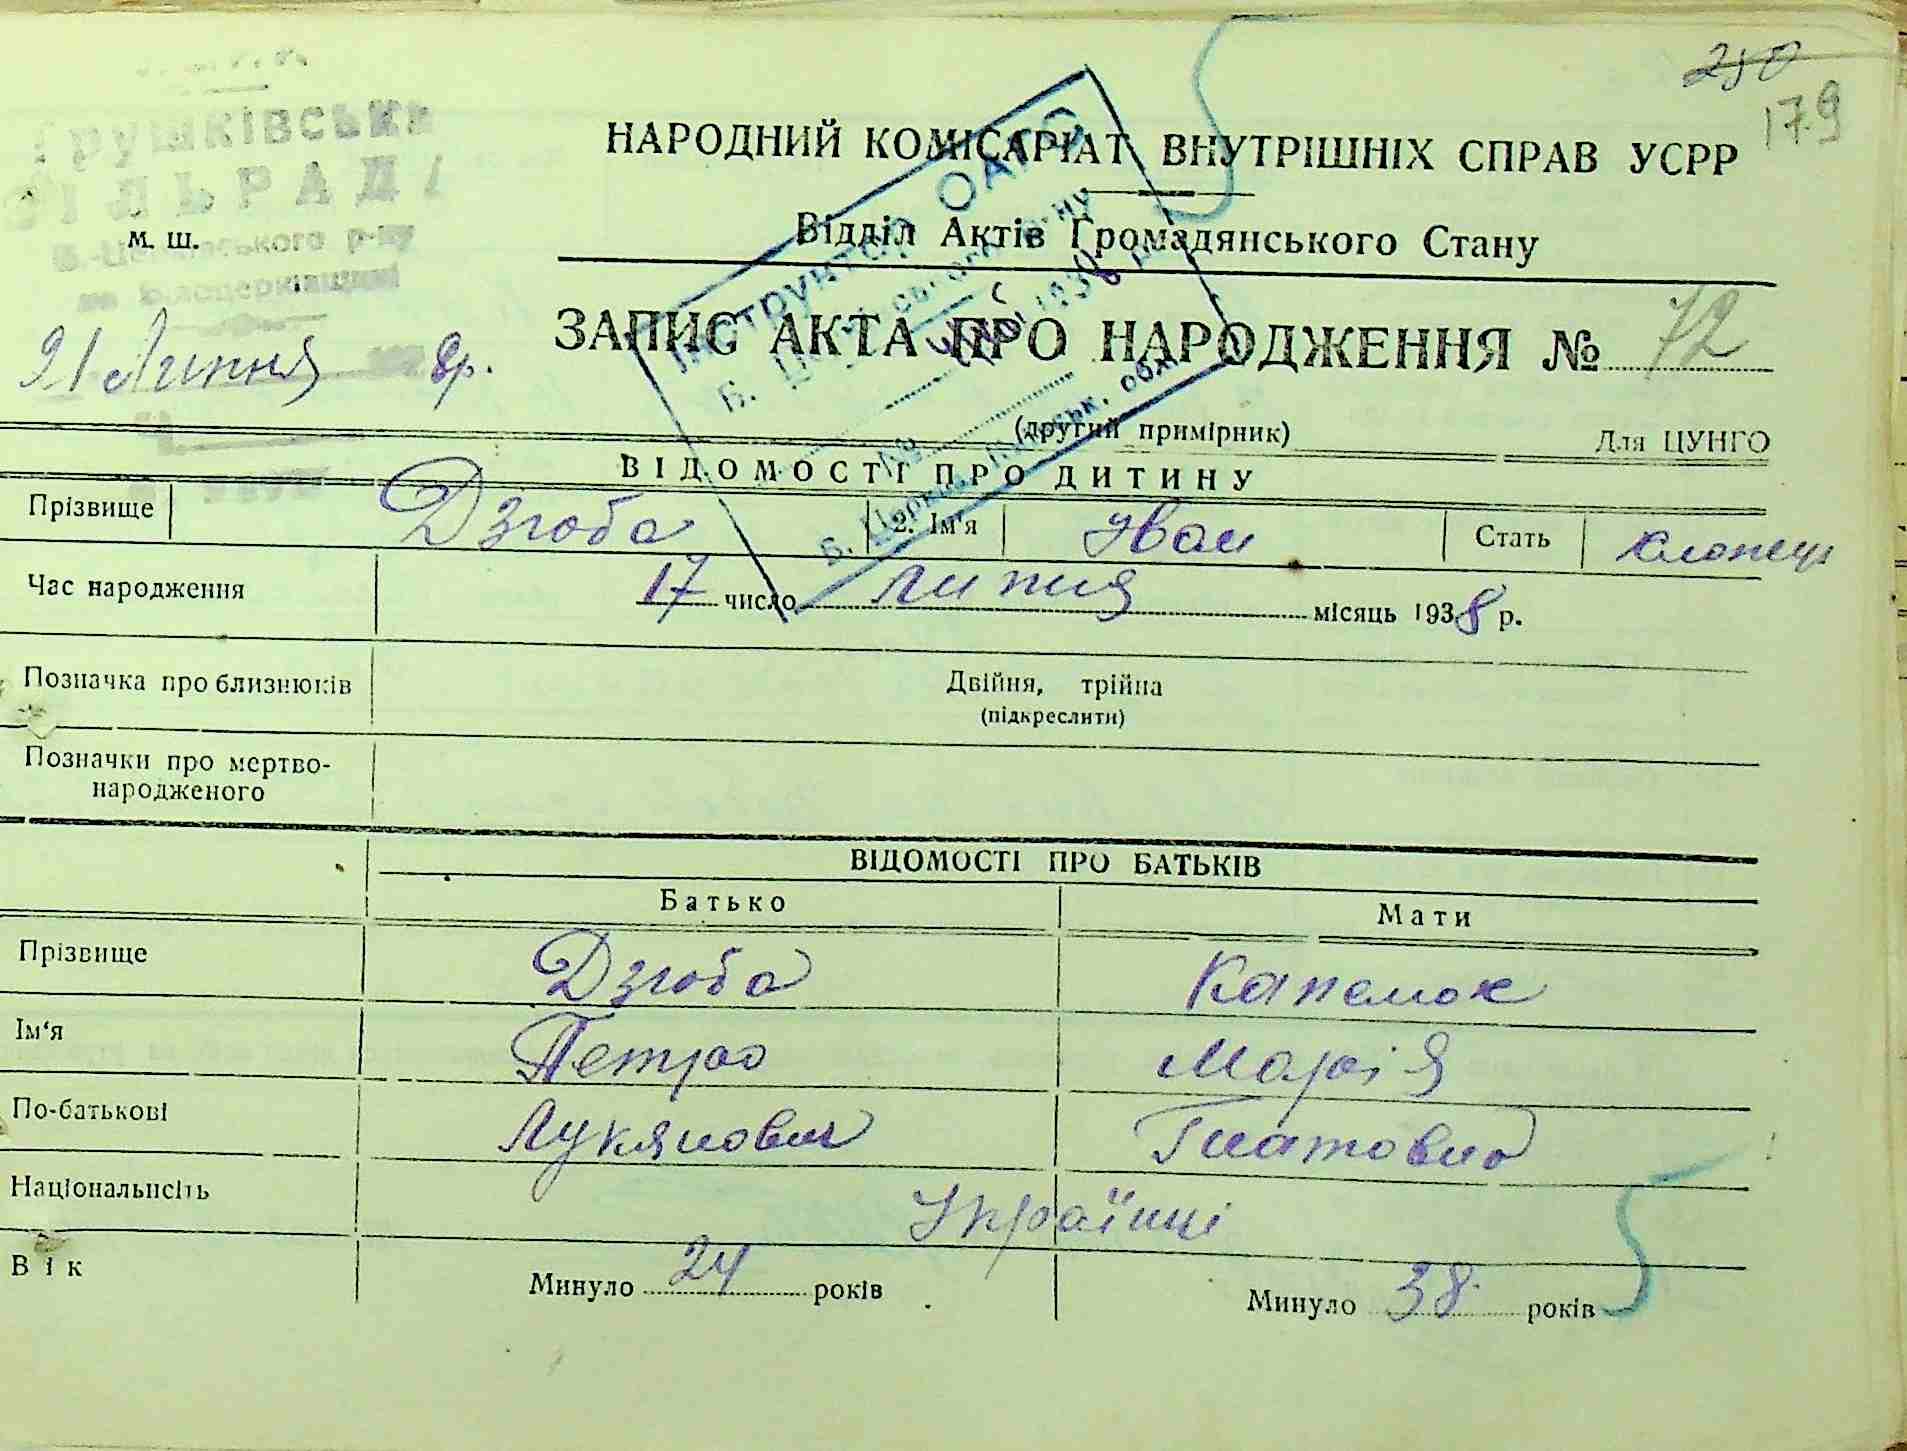 250
179
Грушківська
СІЛЬРАДА
р-ну
на Білоцерківщині
М. Ш.
21 Липня 8р.
НАРОДНИЙ КОМІСАРІАТ ВНУТРІШНІХ СПРАВ УСРР
Відділ Актів Громадянського Стану
ЗАПИС АКТА ПРО НАРОДЖЕННЯ № 72
(другий примірник)
Для ЦУНГО
Інструктор ОАГС
ВІДОМОСТІ ПРО ДИТИНУ
Прізвище Дзюба 2. Ім'я Іван Стать хлопець
Час народження 17 число липня місяць 1938 р.
Позначка про близнюків Двійня, трійня
(підкреслити)
Позначки про мертво-
народженого
ВІДОМОСТІ ПРО БАТЬКІВ
Батько Мати
Прізвище Дзюба
Ім'я Петро Марія
По-батькові Лукянович Гнатовна
Національність Українці
Вік Минуло 24 років Минуло 38 років